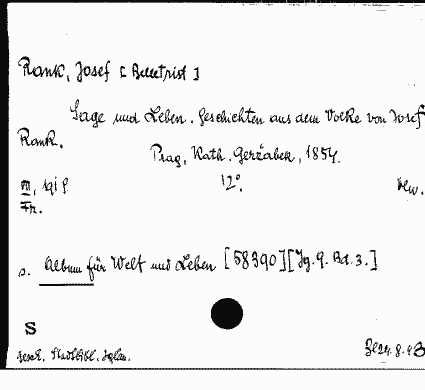 Rank, Josef [Belletrist]
Sage und Leben. Geschichten aus dem Volke von Josef
Rank.
Prag, Kath. Geržabek, 1854.
III, 191 S. 12°. Hlw.
Fr.
s. Album für Welt und Leben [58390][Jg. 9. Bd. 3.]
S
Gesch. Stadtbibl. Iglau.
24. 8. 43